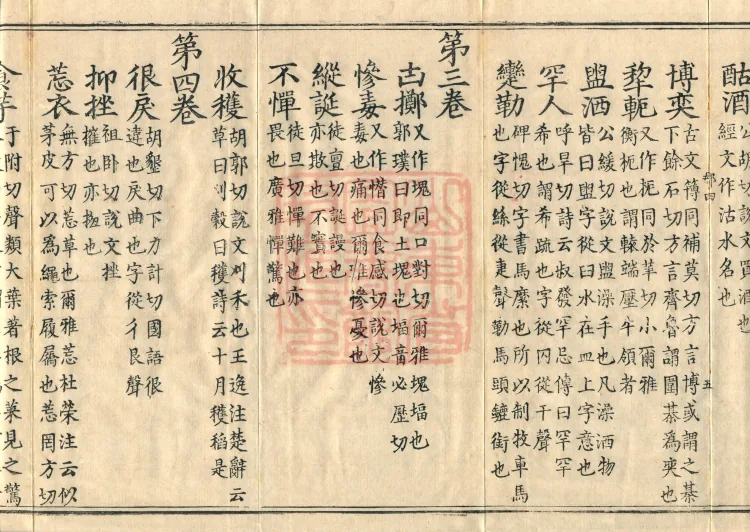 酤酒 公胡切說文買酒也
經文作沽水名也
博奕 古文簙同補莫切方言博或謂之棊
下餘石切方言齊魯謂圍棊為奕也
那四 五
犂軛 又作枙同於革切小爾雅
衡枙也謂轅端壓牛領者
盥洒 公緩切說文盥澡手也凡澡洒物
皆曰盥字從臼水在皿上字意也
罕人 呼旱切詩云叔發罕忌傳曰罕罕
希也謂希疏也字從冈從干聲
勒 碑愧切字書馬縻也所以制牧車馬
也字從絲從聲勒馬頭鑣銜也
第三卷
凷擲 又作塊同口對切爾雅塊堛也
郭璞曰即土塊也堛音必歷切
慘毒 又作憯同食感切說文慘
毒也痛也爾雅慘憂也
縱誕 徒亶切誕謾也
亦散也不實也
不憚 徒旦切憚難也亦
畏也廣雅憚驚也
收穫 胡郭切說文刈禾也王逸注楚辭云
草曰刈穀曰穫詩云十月穫稻是
第四卷
很戾 胡墾切下力計切國語很
違也戾曲也字從彳艮聲
抑挫 祖卧切說文挫
摧也亦也
惹衣 無方切惹草也爾雅惹杜榮注云似
茅皮可以為繩索履屩也惹罔方切
食芋 于附切聲類大葉著根之菜見之驚